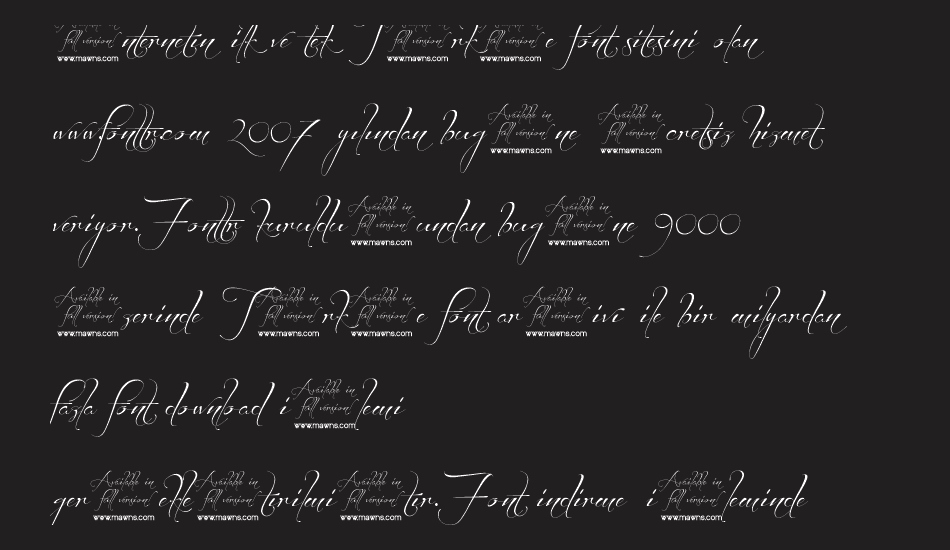 Available in full version www.mawns.com nternetin ilk ve tek T Available in full version www.mawns.com rk Available in full version www.mawns.com e font sitesini olan
www.fonttr.com 2007 yılından bug Available in full version www.mawns.com ne Available in full version www.mawns.com cretsiz hizmet
veriyor. Fonttr kuruldu Available in full version www.mawns.com undan bug Available in full version www.mawns.com ne 9000
Available in full version www.mawns.com zerinde T Available in full version www.mawns.com rk Available in full version www.mawns.com e font ar Available in full version www.mawns.com ivi ile bir milyardan
fazla font download i Available in full version www.mawns.com lemi
ger Available in full version www.mawns.com ekle Available in full version www.mawns.com tirilmi Available in full version www.mawns.com tir. Font indirme i Available in full version www.mawns.com leminde